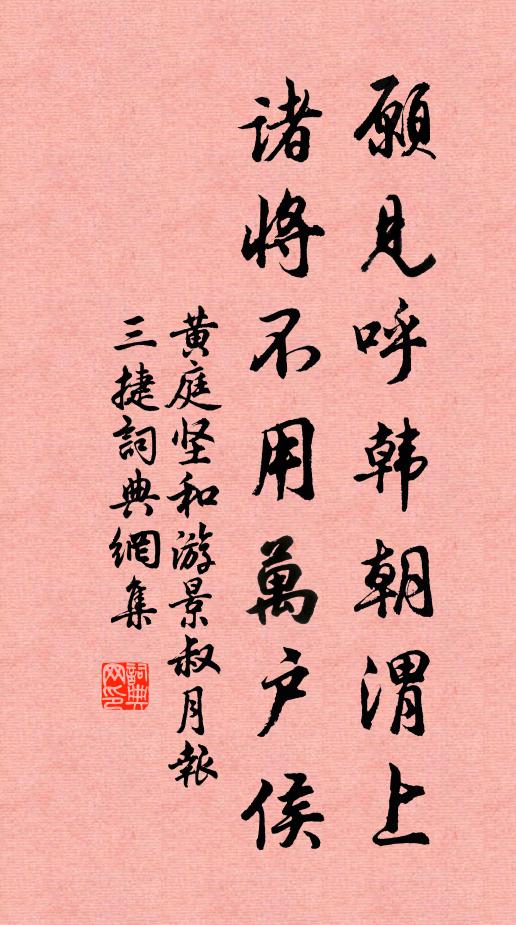 願見呼韩朝渭上
诸將不用萬户侯
黄庭坚和游景叔月報
三捷詞典網集
詞典网印